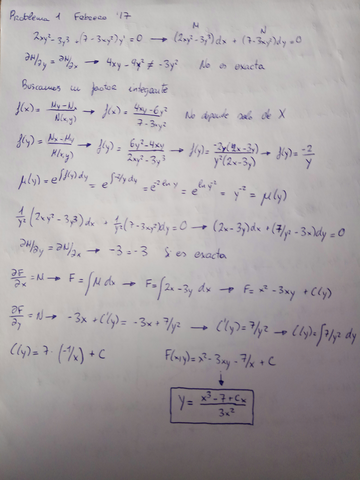 Problema 1 Febrero '17
M N
2xy²-3y³+(7-3xy²)y'=0 → (2xy²-3y³)dx + (7-3xy²)dy=0
∂M/∂y = ∂N/∂x → 4xy-9y² ≠ -3y² No es exacta
Buscamos un factor integrante
f(x) = My-Nx / N(x,y) → f(x) = 4xy-6y² / 7-3xy² No depende solo de X
f(y) = Nx-My / M(x,y) → f(y) = 6y²-4xy / 2xy²-3y³ → f(y) = -2y(2x-3y) / y²(2x-3y) → f(y) = -2/y
μ(y) = e^∫f(y)dy = e^∫-2/y dy = e^-2 ln y = e^ln y⁻² = y⁻² = μ(y)
1/y² (2xy²-3y³)dx + 1/y² (7-3xy²)dy=0 → (2x-3y)dx + (7/y²-3x)dy=0
∂M/∂y = ∂N/∂x → -3=-3 Si es exacta
∂F/∂x = N → F = ∫M dx → F = ∫2x-3y dx → F = x²-3xy + C(y)
∂F/∂y = N → -3x + C'(y) = -3x + 7/y² → C'(y) = 7/y² → C(y) = ∫7/y² dy
C(y) = 7 · (-1/x) + C F(x,y) = x²-3xy-7/x + C
↓
Y = x³-7+Cx / 3x²